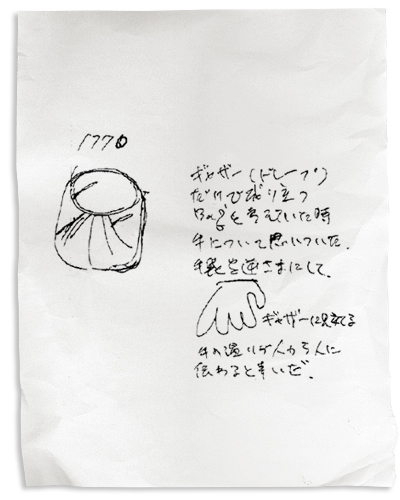 1770
ギャザー(ドレープ)
だけで成り立つ
Bagを考えていた時
手について思いついた.
手袋を逆さまにして.
ギャザーに見立てる
手の温りが人から人に
伝わると幸いだ.